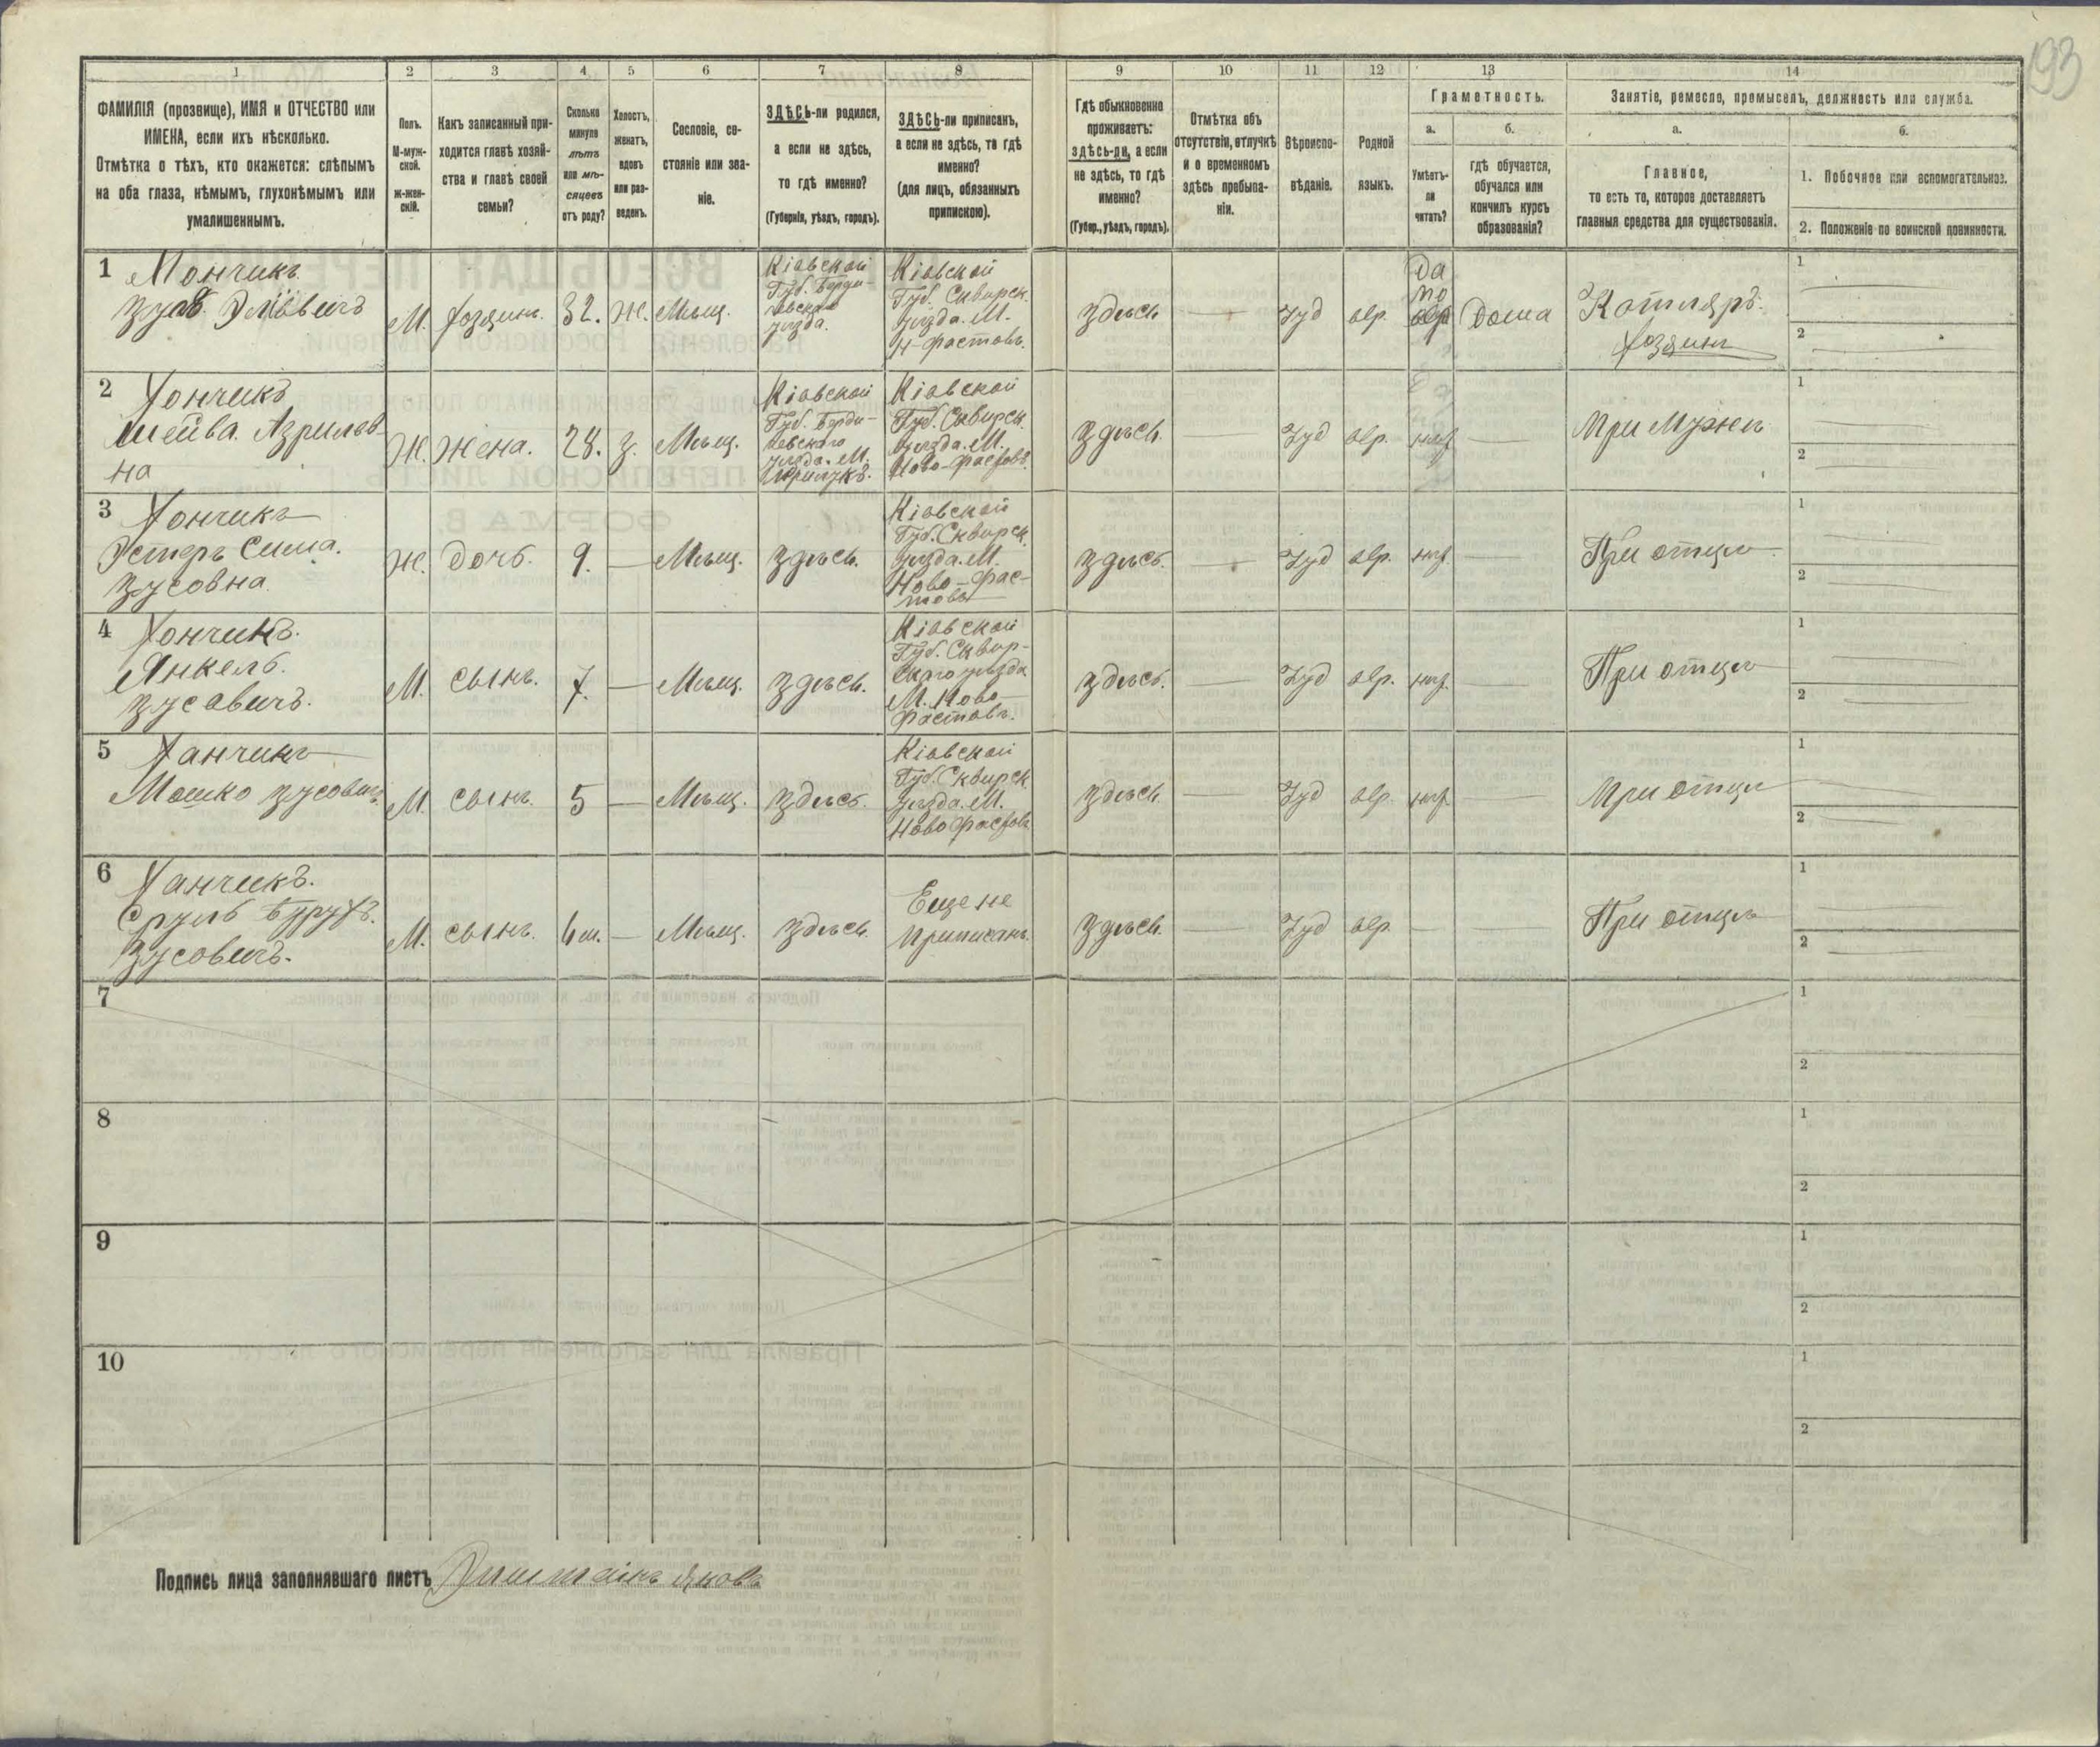 193
1 2 3 4 5 6 7 8 9 10 11 12 13 14
ФАМИЛІЯ (прозвище), ИМЯ и ОТЧЕСТВО или
ИМЕНА, если ихъ нѣсколько.
Отмѣтка о тѣхъ, кто окажется: слѣпымъ
на оба глаза, нѣмымъ, глухонѣмымъ или
умалишеннымъ.
Полъ.
М-муж-
ской.
Ж-жен-
скій.
Какъ записанный при-
ходится главѣ хозяй-
ства и главѣ своей
семьи?
Сколько
минуло
лѣтъ
или мѣ-
сяцевъ
отъ роду?
Холостъ,
женатъ,
вдовъ
или раз-
веденъ.
Сословіе, со-
стояніе или зва-
ніе.
ЗДѢСЬ-ли родился,
а если не здѣсь,
то гдѣ именно?
(Губернія, уѣздъ, городъ).
ЗДѢСЬ-ли приписанъ,
а если не здѣсь, то гдѣ
именно?
(для лицъ, обязанныхъ
припискою).
Гдѣ обыкновенно
проживаетъ:
здѣсь-ли, а если
не здѣсь, то гдѣ
именно?
(Губер., уѣздъ, городъ).
Отмѣтка объ
отсутствіи, отлучкѣ
и о временномъ
здѣсь пребыва-
ніи.
Вѣроиспо-
вѣданіе.
Родной
языкъ.
Грамотность.
а.
Умѣетъ-
ли
читать?
б.
гдѣ обучается,
обучался или
кончилъ курсъ
образованія?
Занятіе, ремесло, промыселъ, должность или служба.
а.
Главное,
то есть то, которое доставляетъ
главныя средства для существованія.
б.
1. Побочное или вспомогательное.
2. Положеніе по воинской повинности.
1
М. хозяинъ. 32. Ж. Мѣщ.
Кіевской
Губ. Берди-
чевскаго
уѣзда.
Кіевской
Губ. Сквирск.
уѣзда. М.
Н-Фастовъ.
здѣсь — Іуд евр.
Да
по
евр
Дома
Котляръ.
хозяинъ
1
2
2 Хончикъ
Шейва. Азрилов-
на
Ж. жена. 28. з. Мѣщ.
Кіевской
Губ. Берди-
чевскаго
уѣзда. М.
Прилукъ.
Кіевской
Губ. Сквирск.
уѣзда. М.
Ново-Фастовъ
здѣсь. — Іуд евр. нѣт — При мужѣ
1
2
3 Хончикъ
Эстеръ Сима.
Зусовна.
Ж. дочь. 9. — Мѣщ. здѣсь.
Кіевской
Губ. Сквирск.
уѣзда. М.
Ново-Фас-
товъ
здѣсь. — Іуд евр. нѣт — При отцѣ
1
2
4 Хончикъ.
Янкель.
Зусовичъ.
М. сынъ. 7. — Мѣщ. здѣсь.
Кіевской
Губ. Сквир-
скаго уѣзда
М. Ново
Фастовъ.
здѣсь. — Іуд евр. нѣт. — При отцѣ
1
2
5 Ханчикъ
Мошко Зусовичъ
М. сынъ. 5 — Мѣщ. здѣсь.
Кіевской
Губ. Сквирск
уѣзда. М.
Ново Фастовъ
здѣсь — Іуд евр. нѣт — При отцѣ
1
2
6 Ханчикъ.
Сруль Бурухъ.
Зусовичъ.
М. сынъ. 4 м. — Мѣщ. здѣсь.
Еще не
приписанъ.
здѣсь. — Іуд евр. — — При отцѣ
1
2
7
1
2
8
1
2
9
1
2
10
1
2
Подпись лица заполнявшаго листъ